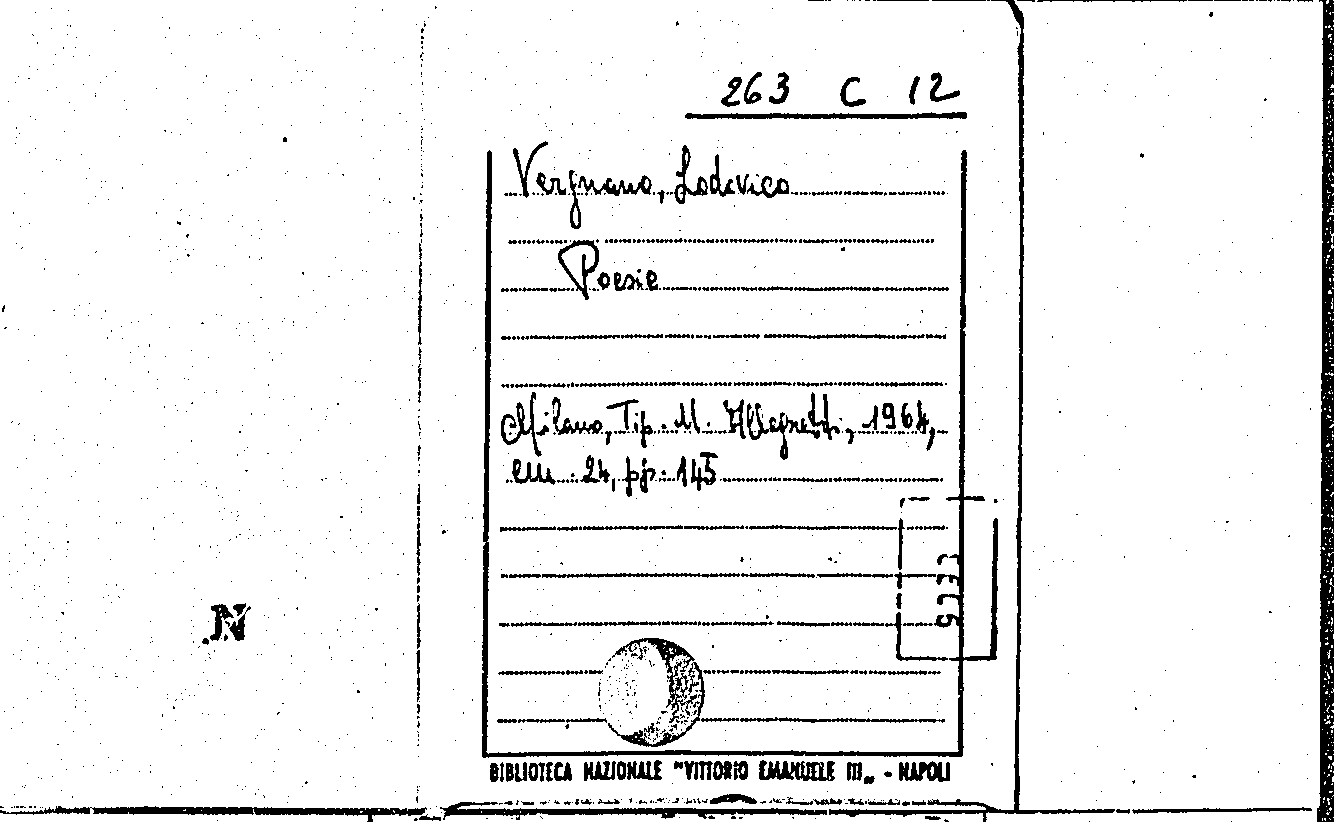 263 C 12
Vergnano, Lodovico
Poesie
Milano, Tip. M. Magnetti, 1964,
cm. 24, pp. 145
N
BIBLIOTECA NAZIONALE "VITTORIO EMANUELE III„ - NAPOLI